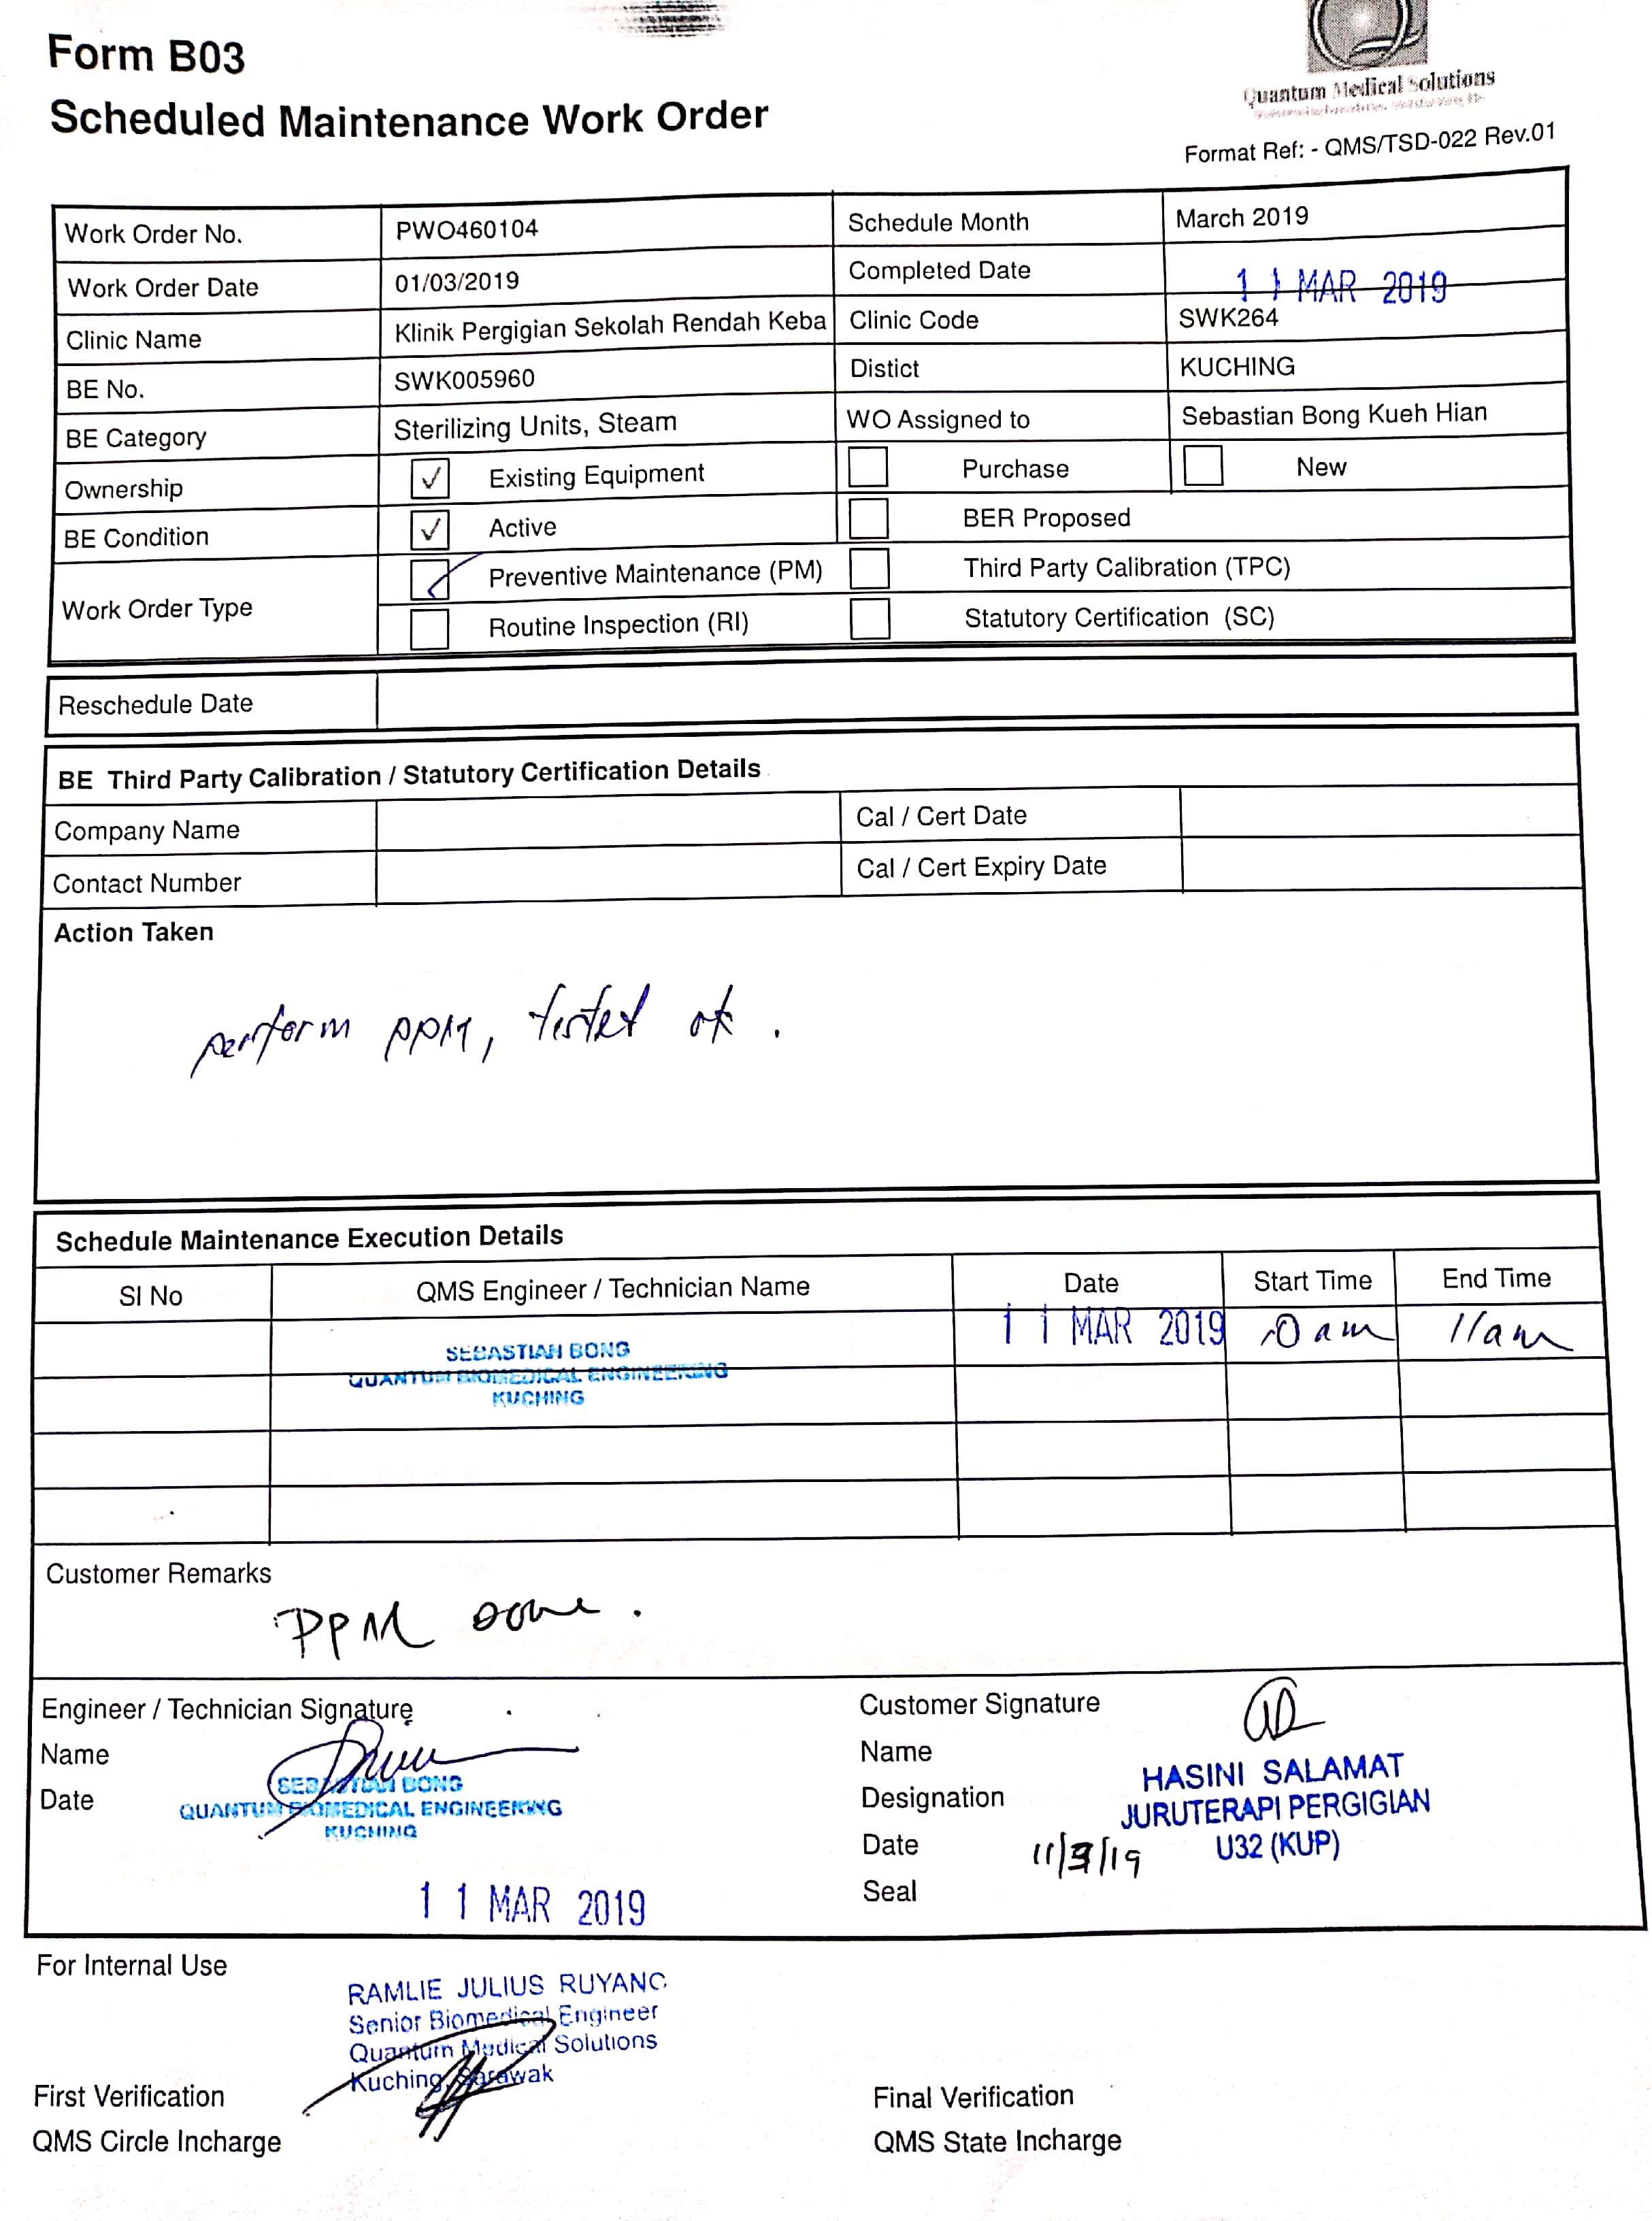 Form B03
Scheduled Maintenance Work Order
Quantum Medical Solutions
Format Ref: - QMS/TSD-022 Rev.01
Work Order No. PWO460104 Schedule Month March 2019
Work Order Date 01/03/2019 Completed Date 11 MAR 2019
Clinic Name Klinik Pergigian Sekolah Rendah Keba Clinic Code SWK264
BE No. SWK005960 Distict KUCHING
BE Category Sterilizing Units, Steam WO Assigned to Sebastian Bong Kueh Hian
Ownership ✓ Existing Equipment Purchase New
BE Condition ✓ Active BER Proposed
Work Order Type ✓ Preventive Maintenance (PM) Third Party Calibration (TPC)
Routine Inspection (RI) Statutory Certification (SC)
Reschedule Date
BE Third Party Calibration / Statutory Certification Details
Company Name Cal / Cert Date
Contact Number Cal / Cert Expiry Date
Action Taken
perform PPM, tested ok.
Schedule Maintenance Execution Details
SI No QMS Engineer / Technician Name Date Start Time End Time
SEBASTIAN BONG 11 MAR 2019 10am 11am
QUANTUM BIOMEDICAL ENGINEERING
KUCHING
Customer Remarks
PPM done.
Engineer / Technician Signature Customer Signature
Name Name
SEBASTIAN BONG HASINI SALAMAT
Date Designation
QUANTUM BIOMEDICAL ENGINEERING JURUTERAPI PERGIGIAN
KUCHING U32 (KUP)
Date 11/3/19
Seal
11 MAR 2019
For Internal Use
RAMLIE JULIUS RUYANG
Senior Biomedical Engineer
Quantum Medical Solutions
Kuching, Sarawak
First Verification Final Verification
QMS Circle Incharge QMS State Incharge